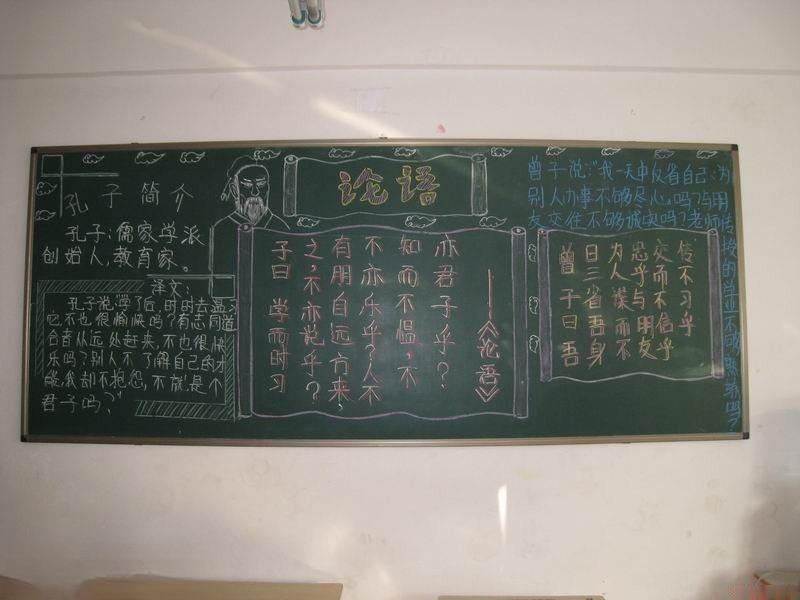 论语
孔子简介
孔子：儒家学派
创始人，教育家。
译文：
孔子说：学了后，时时去温习
它不也很愉快吗？有志同道
合者从远处赶来，不也很快
乐吗？别人不了解自己的才
能，我却不抱怨，不就是个
君子吗？”
子曰 学而时习
之，不亦说乎？
有朋自远方来，
不亦乐乎？人不
知而不愠，不
亦君子乎？
——《论语》
曾子说：“我一天中反省自己：为
别人办事不够尽心吗？与朋
友交往不够诚实吗？老师传
授的业不够熟练吗？
曾子曰吾
日三省吾身
为人谋而不
忠乎与朋友
交而不信乎
传不习乎